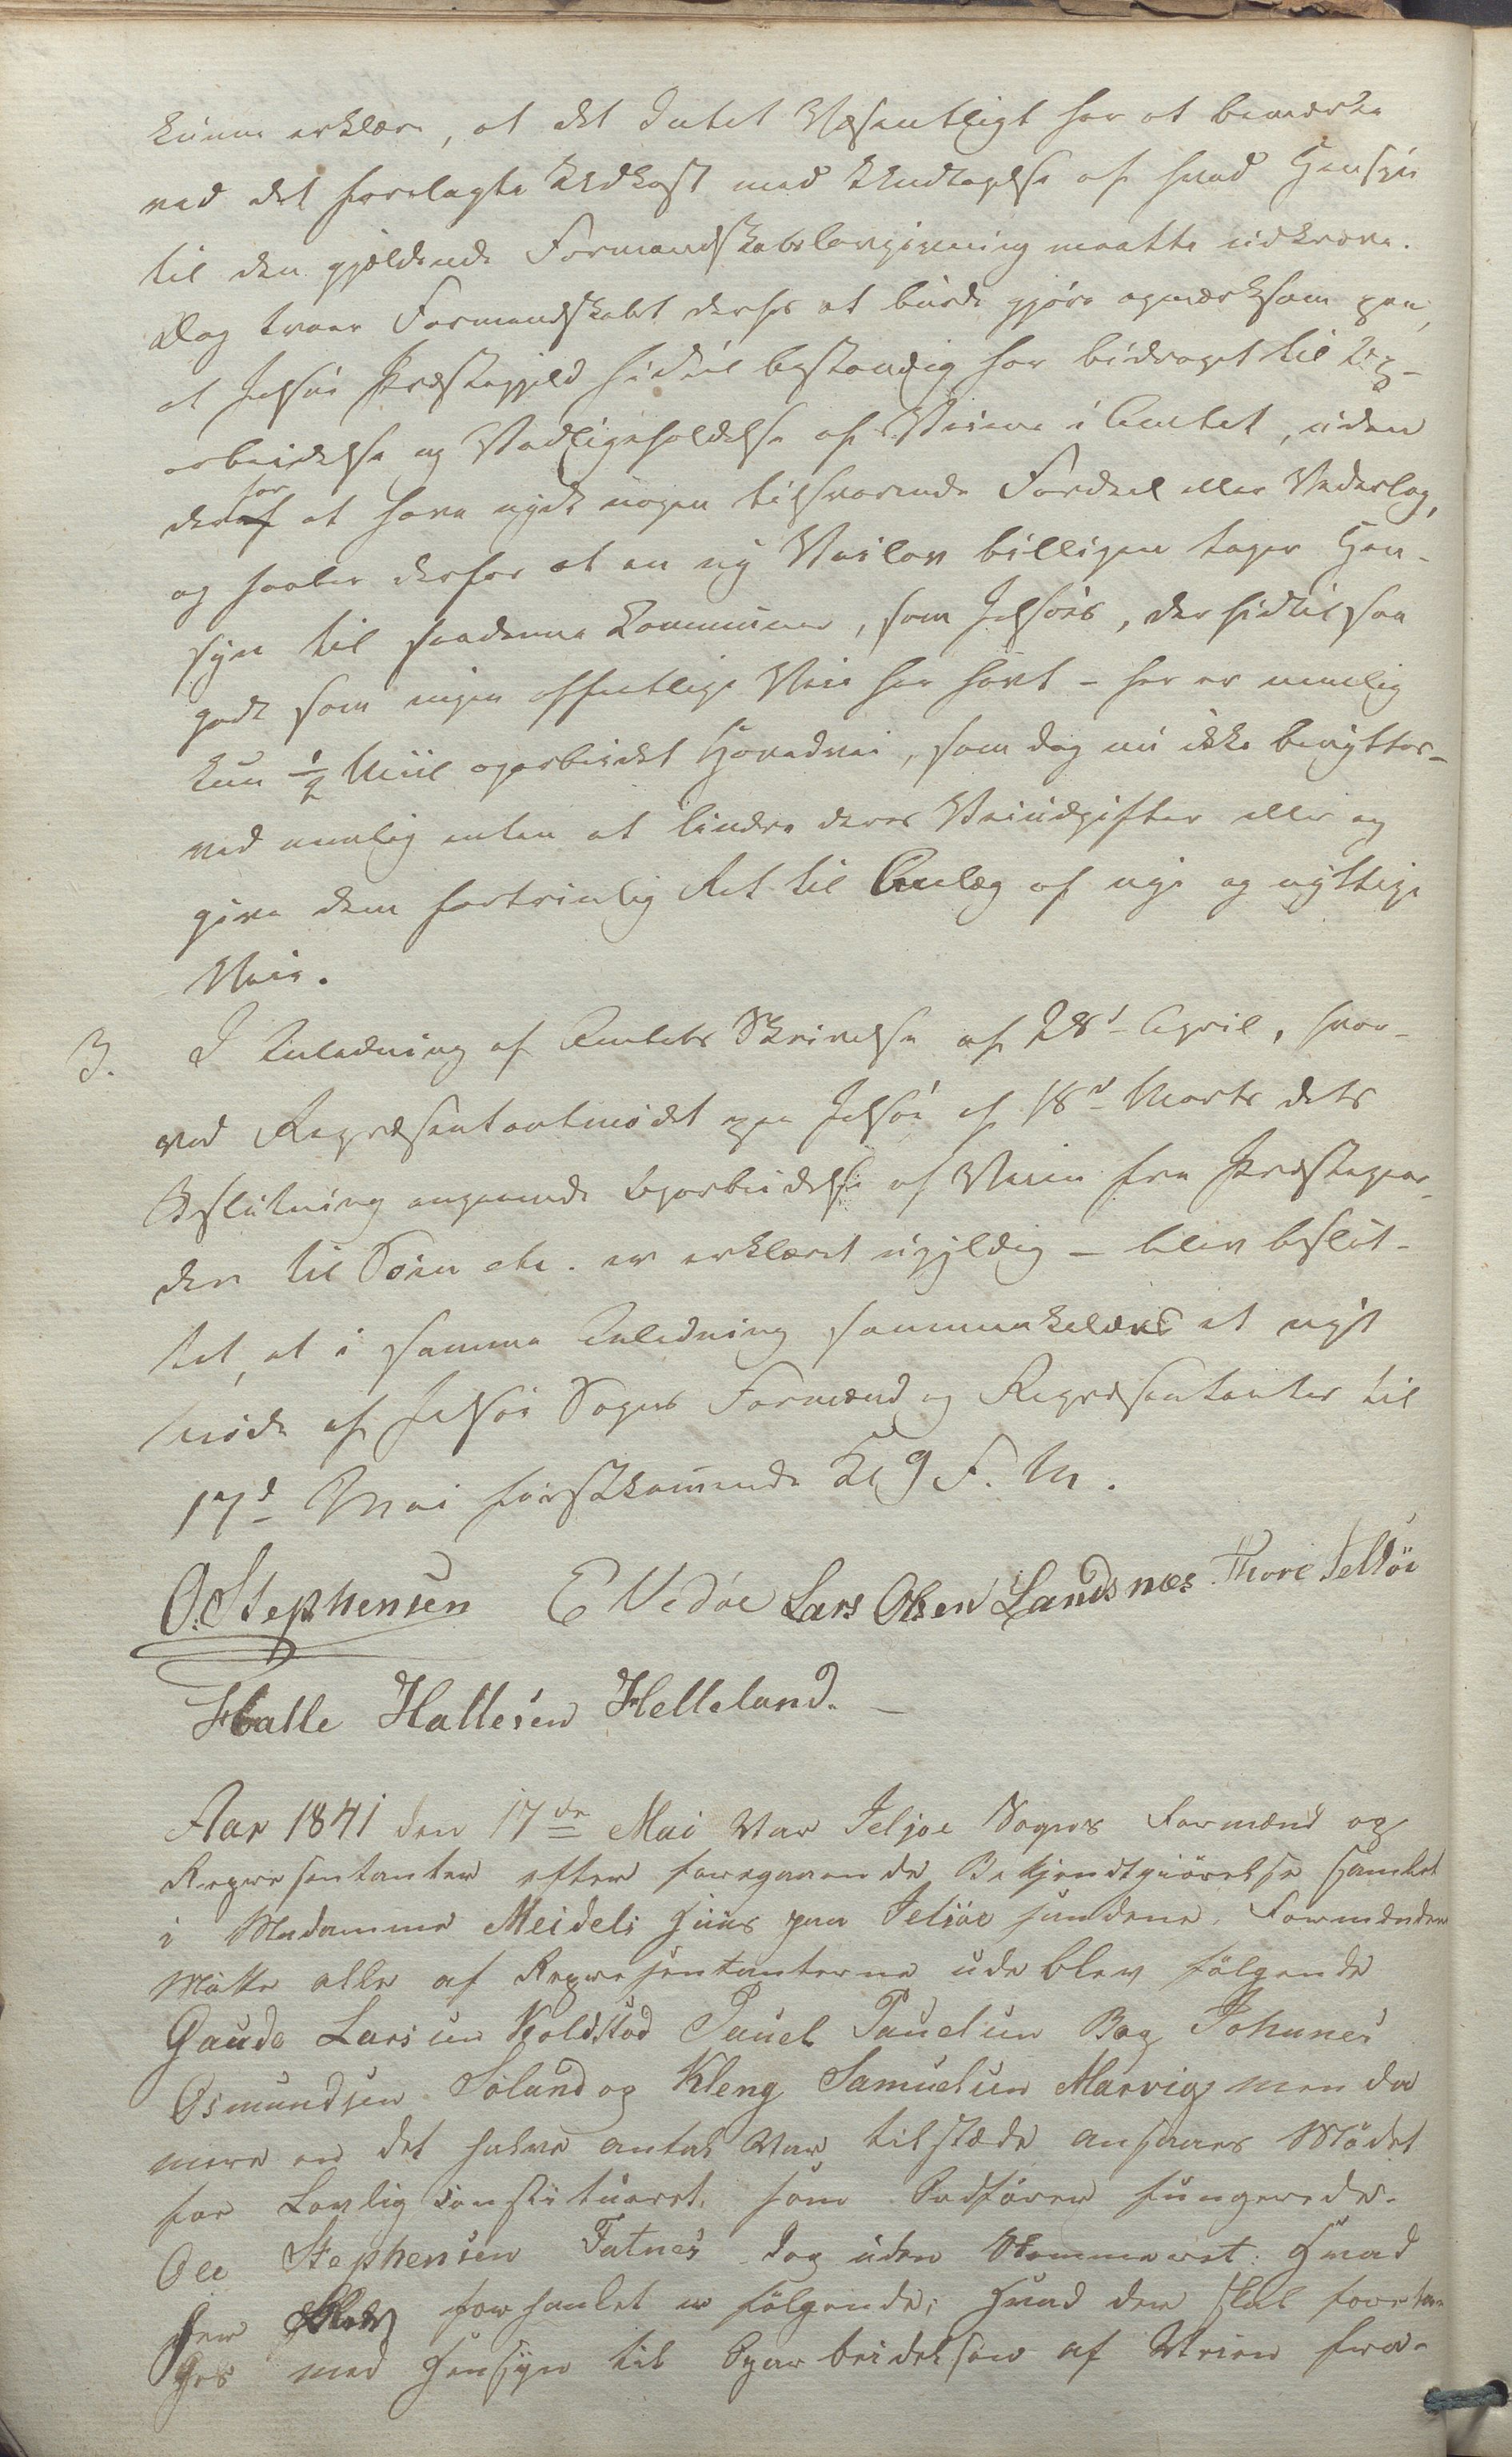 kunne erklære, at det Intet Væsentligt har at bemærke
ved det forelagte Udkast med Undtagelse af hvad Hensyn
til den gjældende Formandskabslovgivning maatte udkræve.
Dog troer Formandskabet derhos at burde gjøre opmærksom paa,
at Jelsøe Præstegjeld hidtil bestandig har bidraget til Op-
arbeidelse og Vedligeholdelse af Veiene i Amtet, uden
derfor at have nydt nogen tilsvarende Fordeel eller Vederlag,
og haaber derfor at en ny Veilov billigen tager Hen-
syn til saadanne Communer, som Jelsøes, der hidtil saa
godt som ingen offentlige Veie har havt – her er nemlig
kun ½ Miil oparbeidet Hovedvei, som dog nu ikke benyttes –
ved nemlig enten at lindre deres Veiudgifter eller og
give dem fortrinlig Ret til Anlæg af nye og nyttige
Veie.
3. I Anledning af Amtets Skrivelse af 28d April, hvor-
ved Repræsentantmødet paa Jelsøe af 18d Marts dets
Beslutning angaaende Oparbeidelse af Veien fra Præstegaar-
den til Søen etc. er erklæret ugyldig – blev beslut-
tet, at i samme Anledning sammenkaldes et nyt
Møde af Jelsøe Sogns Formænd og Repræsentanter til
17d Mai førstkommende Kl 9 F. M.
O. Stephensen E Vedøe Lars Olsen Landsnæs Thore Jelsøe
Halle Hallesen Helleland. –
Aar 1841 den 17de Mai Var Jelsøe Sogns Formænd og
Representanter efter foregaaende Bekjendtgiörelse samlet
i Madamme Meidels Huus paa Jelsöe sandene, Formændene
Mötte alle af Representanterne udeblev fölgende
Gaude Larsen Koldstod Pauel Pauelsen Bog Johanes
Osmundsen Soland og Kleng Samuelsen Marvig men da
mere en det halve antal Var tilstæde ansaaes Mödet
for Lovlig Constitueret, som Ordförer fungerede.
Ole Stephensen Fatnes dog uden Stemmeret: Hvad
her forhanlet er fölgende; Hvad der skal foreta-
ges med Hensyn til Oparbeidelsen af Veien fra-